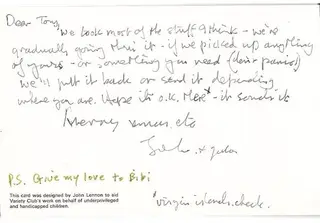 Dear Tony
we took most of the stuff I think - we're
gradually going thru' it - if we picked up anything
of yours - or something you need (dear panic)
we'll put it back or send it depending
where you are. Hope it's o.k. there - it sounds it
Merry xmas, etc
John + Yoko
P.S. Give my love to Bibi
This card was designed by John Lennon to aid
Variety Club's work on behalf of underprivileged
and handicapped children.
virgin islands. check.